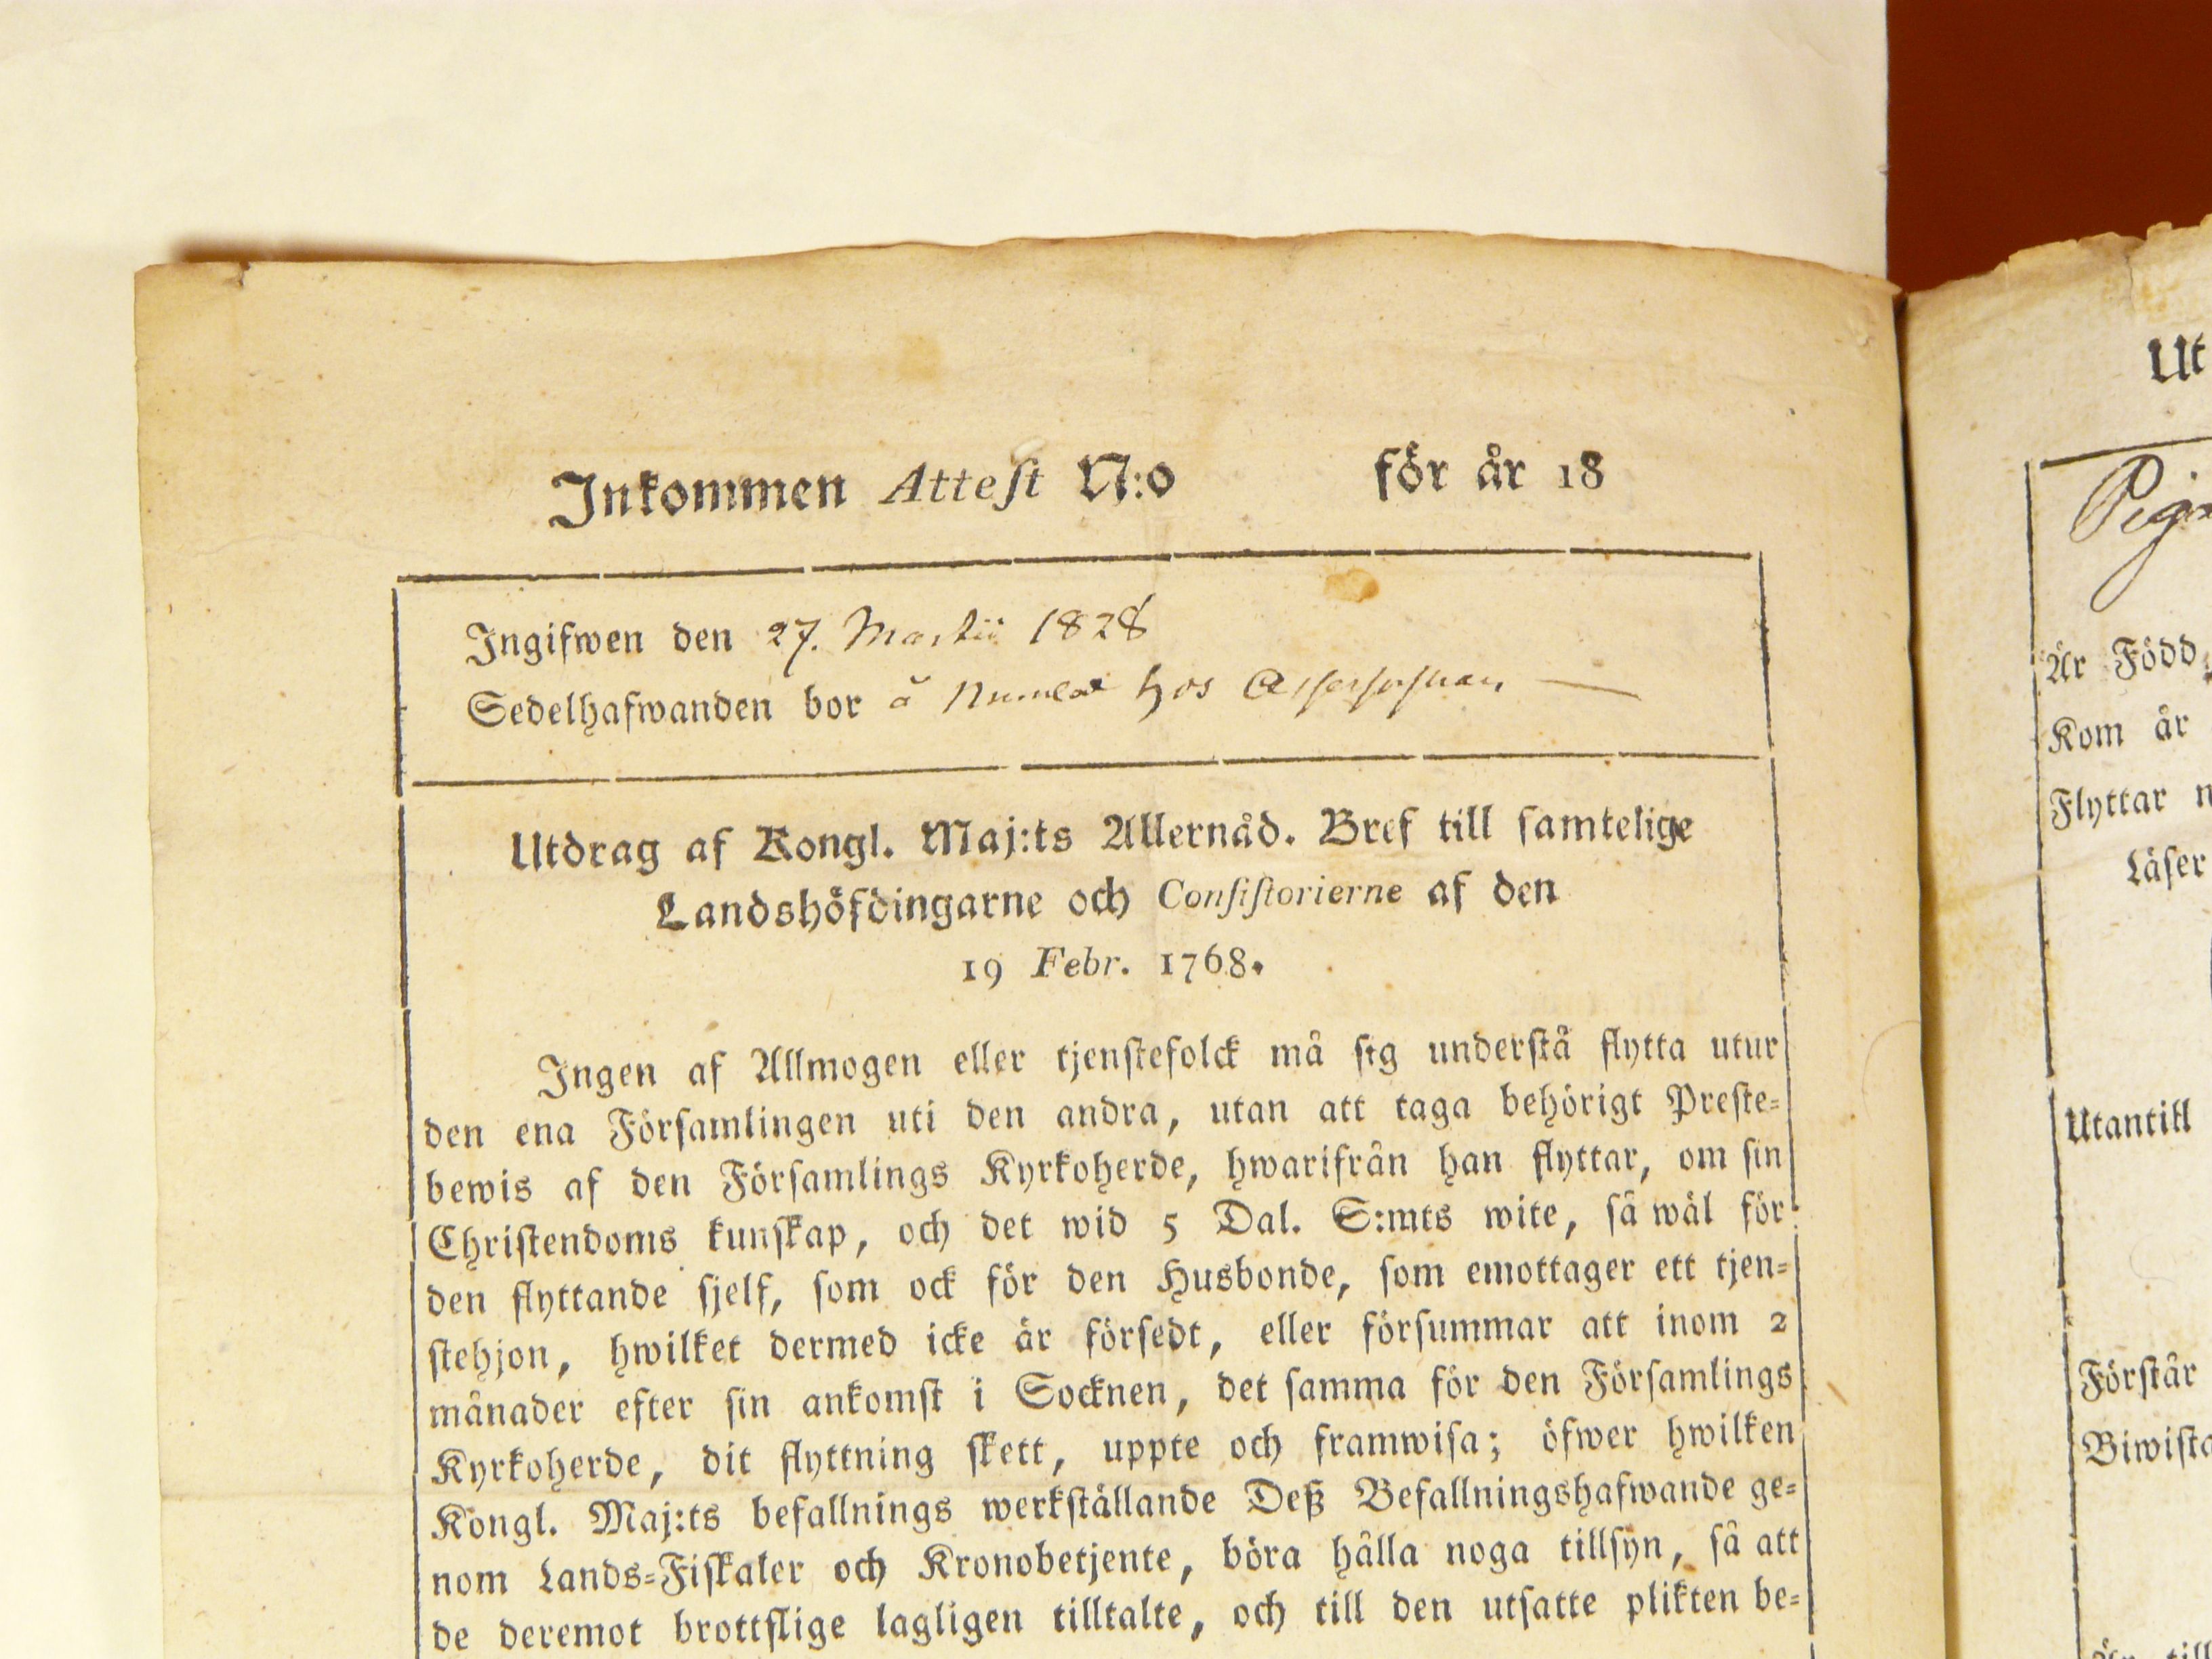 Inkommen Attest N:o för år 18
Ingifwen den 27. Martii 1828
Sedelhafwanden bor å hos
Utdrag af Kongl. Maj:ts Allernåd. Bref till samtelige
Landshöfdingarne och Consistorierne af den
19 Febr. 1768.
Ingen af Allmogen eller tjenstefolck må sig understå flytta utur
den ena Församlingen uti den andra, utan att taga behörigt Preste-
bewis af den Församlings Kyrkoherde, hwarifrån han flyttar, om sin
Christendoms kunskap, och det wid 5 Dal. S:mts wite, så wäl för
den flyttande sjelf, som ock för den Husbonde, som emottager ett tjen-
stehjon, hwilket dermed icke är försedt, eller försummar att inom 2
månader efter sin ankomst i Socknen, det samma för den Församlings
Kyrkoherde, dit flyttning skett, uppte och framwisa; öfwer hwilken
Kongl. Maj:ts befallnings werkställande Deß Befallningshafwande ge-
nom Lands-Fiskaler och Kronobetjente, böra hålla noga tillsyn, så att
de deremot brottslige lagligen tilltalte, och till den utsatte plikten be-
Ut
Är Född
Kom år
Flyttar
Läser
Utantill
Förstår